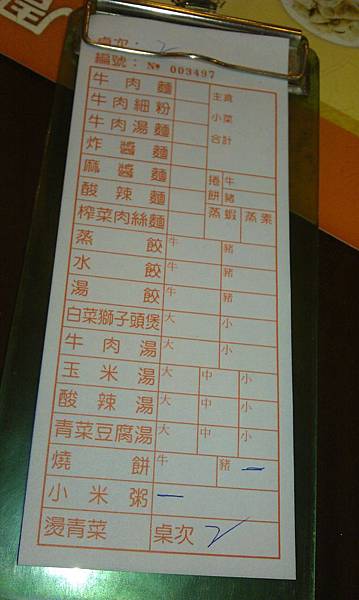 桌次： 2
編號：Nº 003497
牛肉麵 主食
牛肉細粉 小菜
牛肉湯麵 合計
炸醬麵
麻醬麵 捲餅 牛
酸辣麵 豬
榨菜肉絲麵 蒸蝦 蒸素
蒸餃 牛 豬
水餃 牛 豬
湯餃 牛 豬
白菜獅子頭煲 大 小
牛肉湯 大 小
玉米湯 大 中 小
酸辣湯 大 中 小
青菜豆腐湯 大 中 小
燒餅 牛 豬 一
小米粥 一
燙青菜 桌次 2